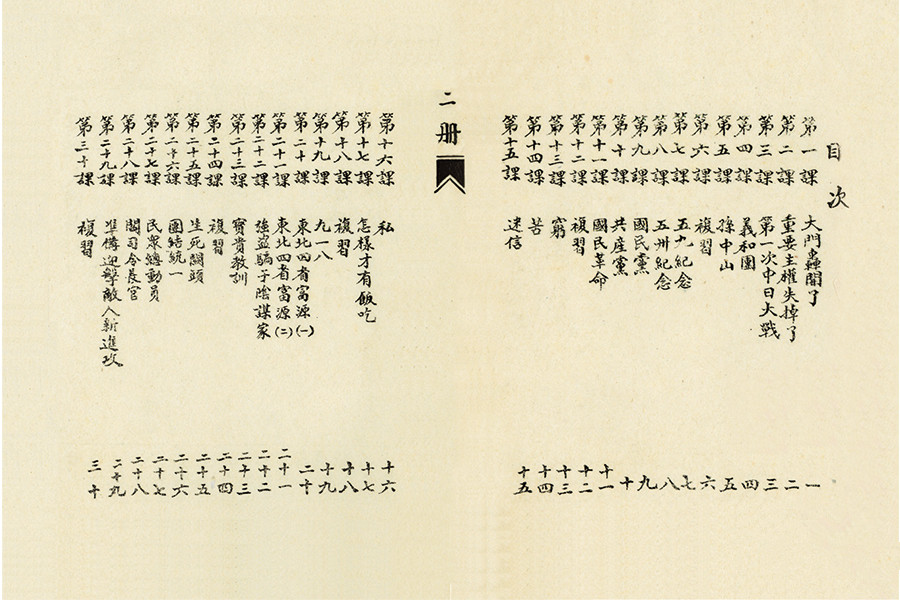 目次
第一課 大門轟開了 一
第二課 重要主權失掉了 二
第三課 第一次中日大戰 三
第四課 義和團 四
第五課 孫中山 五
第六課 複習 六
第七課 五九紀念 七
第八課 五卅紀念 八
第九課 國民黨 九
第十課 共產黨 十
第十一課 國民革命 十一
第十二課 複習 十二
第十三課 窮 十三
第十四課 苦 十四
第十五課 迷信 十五
二冊
第十六課 私 十六
第十七課 怎樣才有飯吃 十七
第十八課 複習 十八
第十九課 九一八 十九
第二十課 東北四省富源(一) 二十
第二十一課 東北四省富源(二) 二十一
第二十二課 強盜騙子陰謀家 二十二
第二十三課 寶貴教訓 二十三
第二十四課 複習 二十四
第二十五課 生死關頭 二十五
第二十六課 團結統一 二十六
第二十七課 民眾總動員 二十七
第二十八課 閻司令長官 二十八
第二十九課 準備迎擊敵人新進攻。 二十九
第三十課 複習 三十